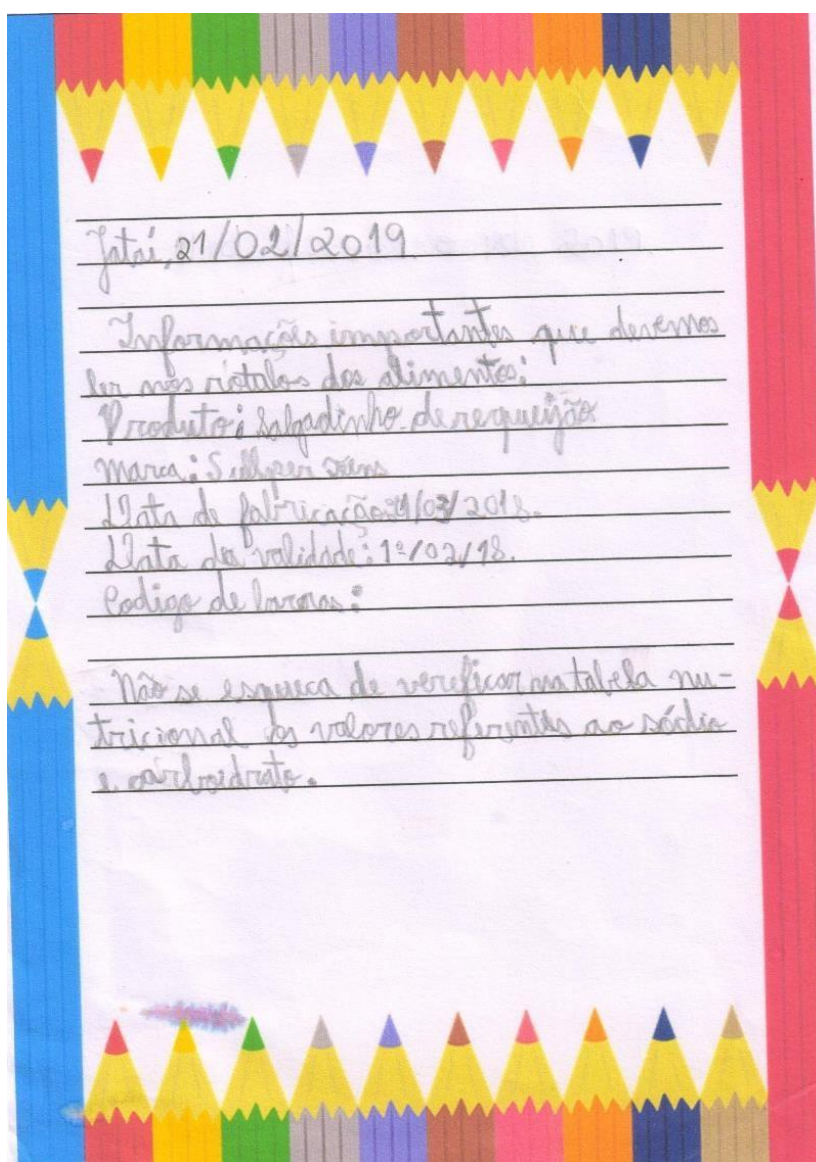 Jataí, 21/02/2019.
Informações importantes que devemos
ler nos rótulos dos alimentos:
Produto: Salgadinho de requeijão
Marca:
Data de fabricação: /03/2018.
Data da validade: 1º/02/18.
Codigo de barras:
Não se esqueca de verificar na tabela nu-
tricional os valores referentes ao sódio
e carboidrato.